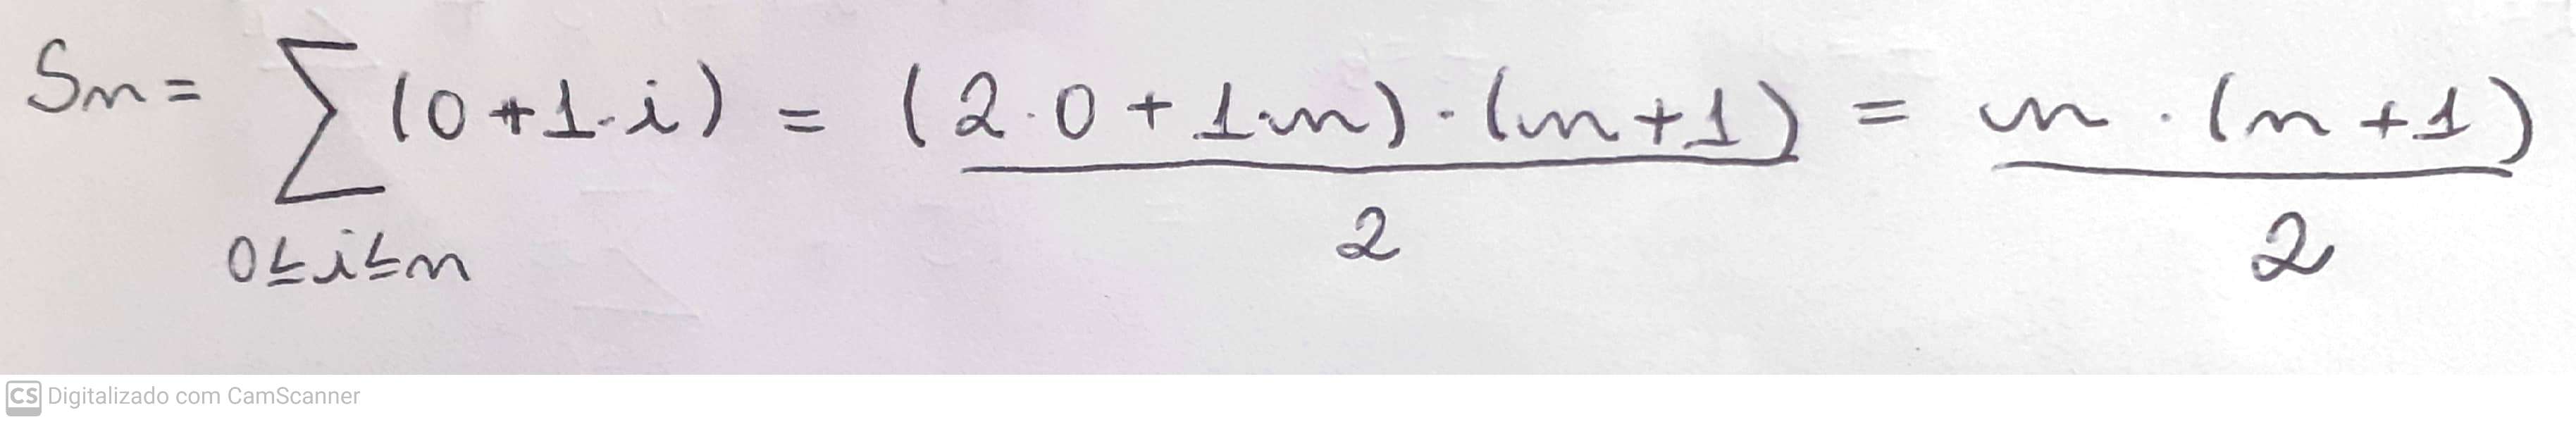 Sn = ∑ (0+1·i) = (2·0+1·n)·(n+1) = n·(n+1)
0≤i≤n 2 2
CS Digitalizado com CamScanner